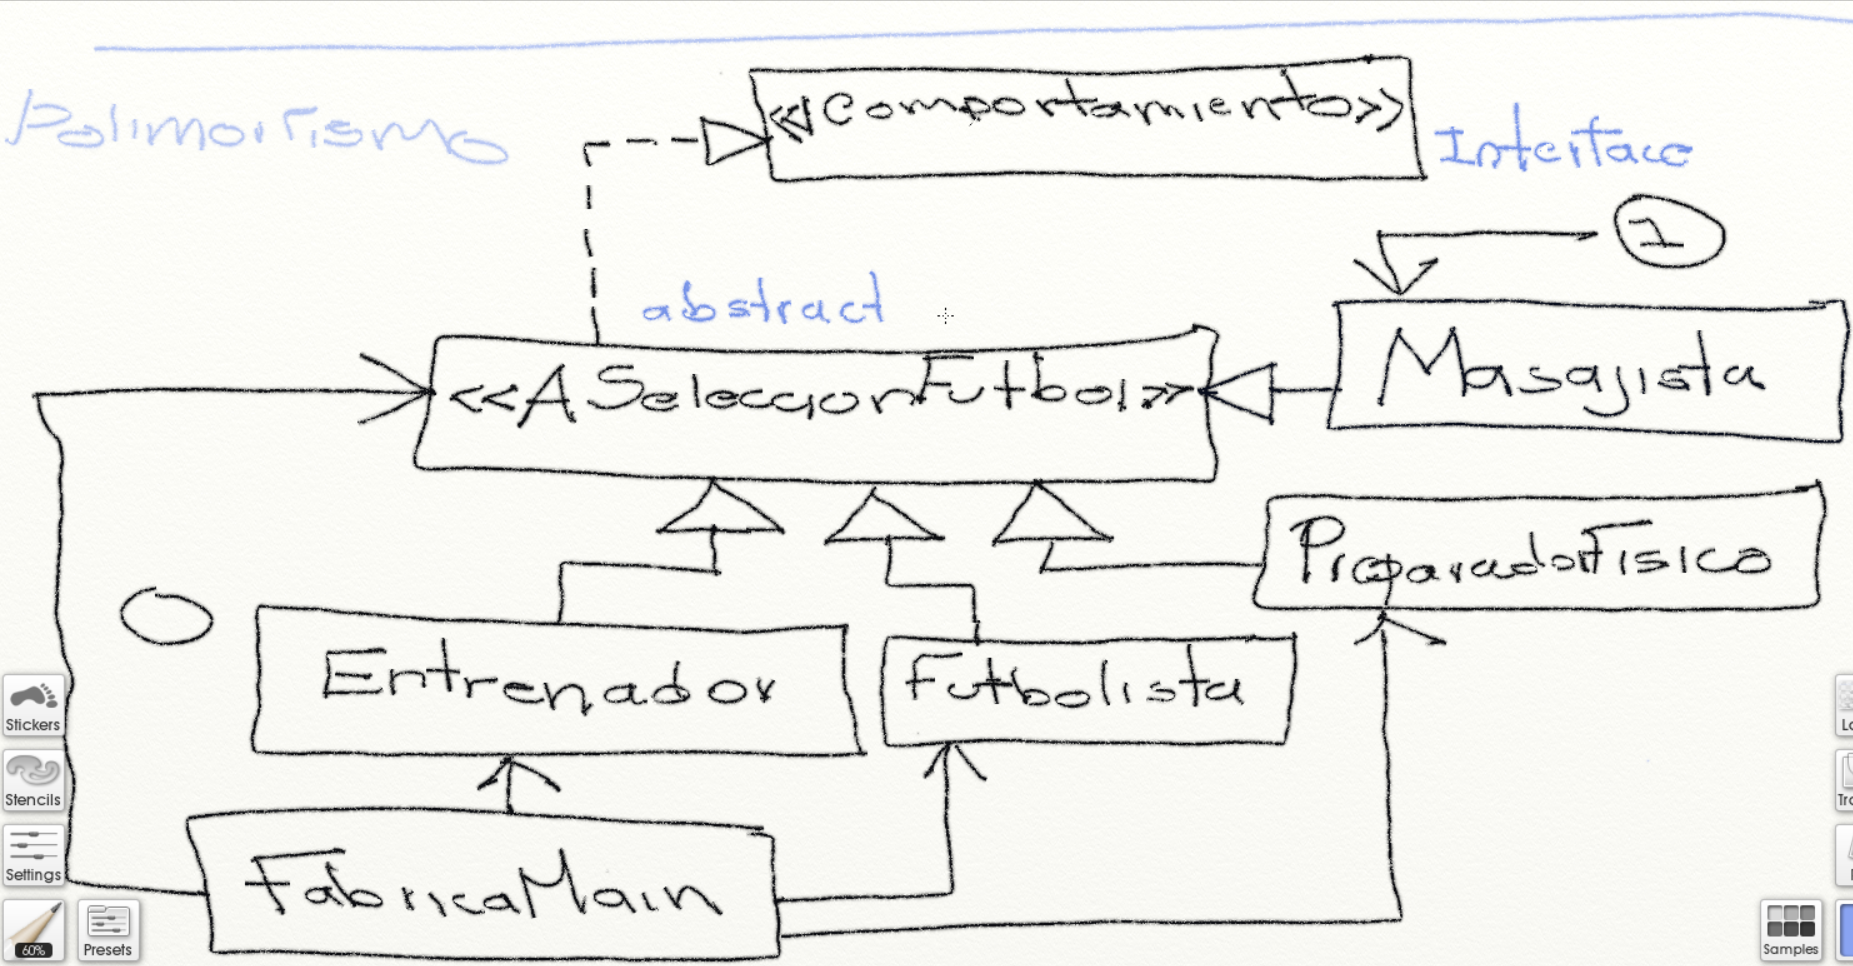 Polimorfismo
<<Comportamiento>>
Interface
1
abstract
<<ASeleccionFutbol>>
Masajista
PreparadorFisico
Entrenador
Futbolista
FabricaMain
Stickers
Stencils
Settings
60%
Presets
Samples